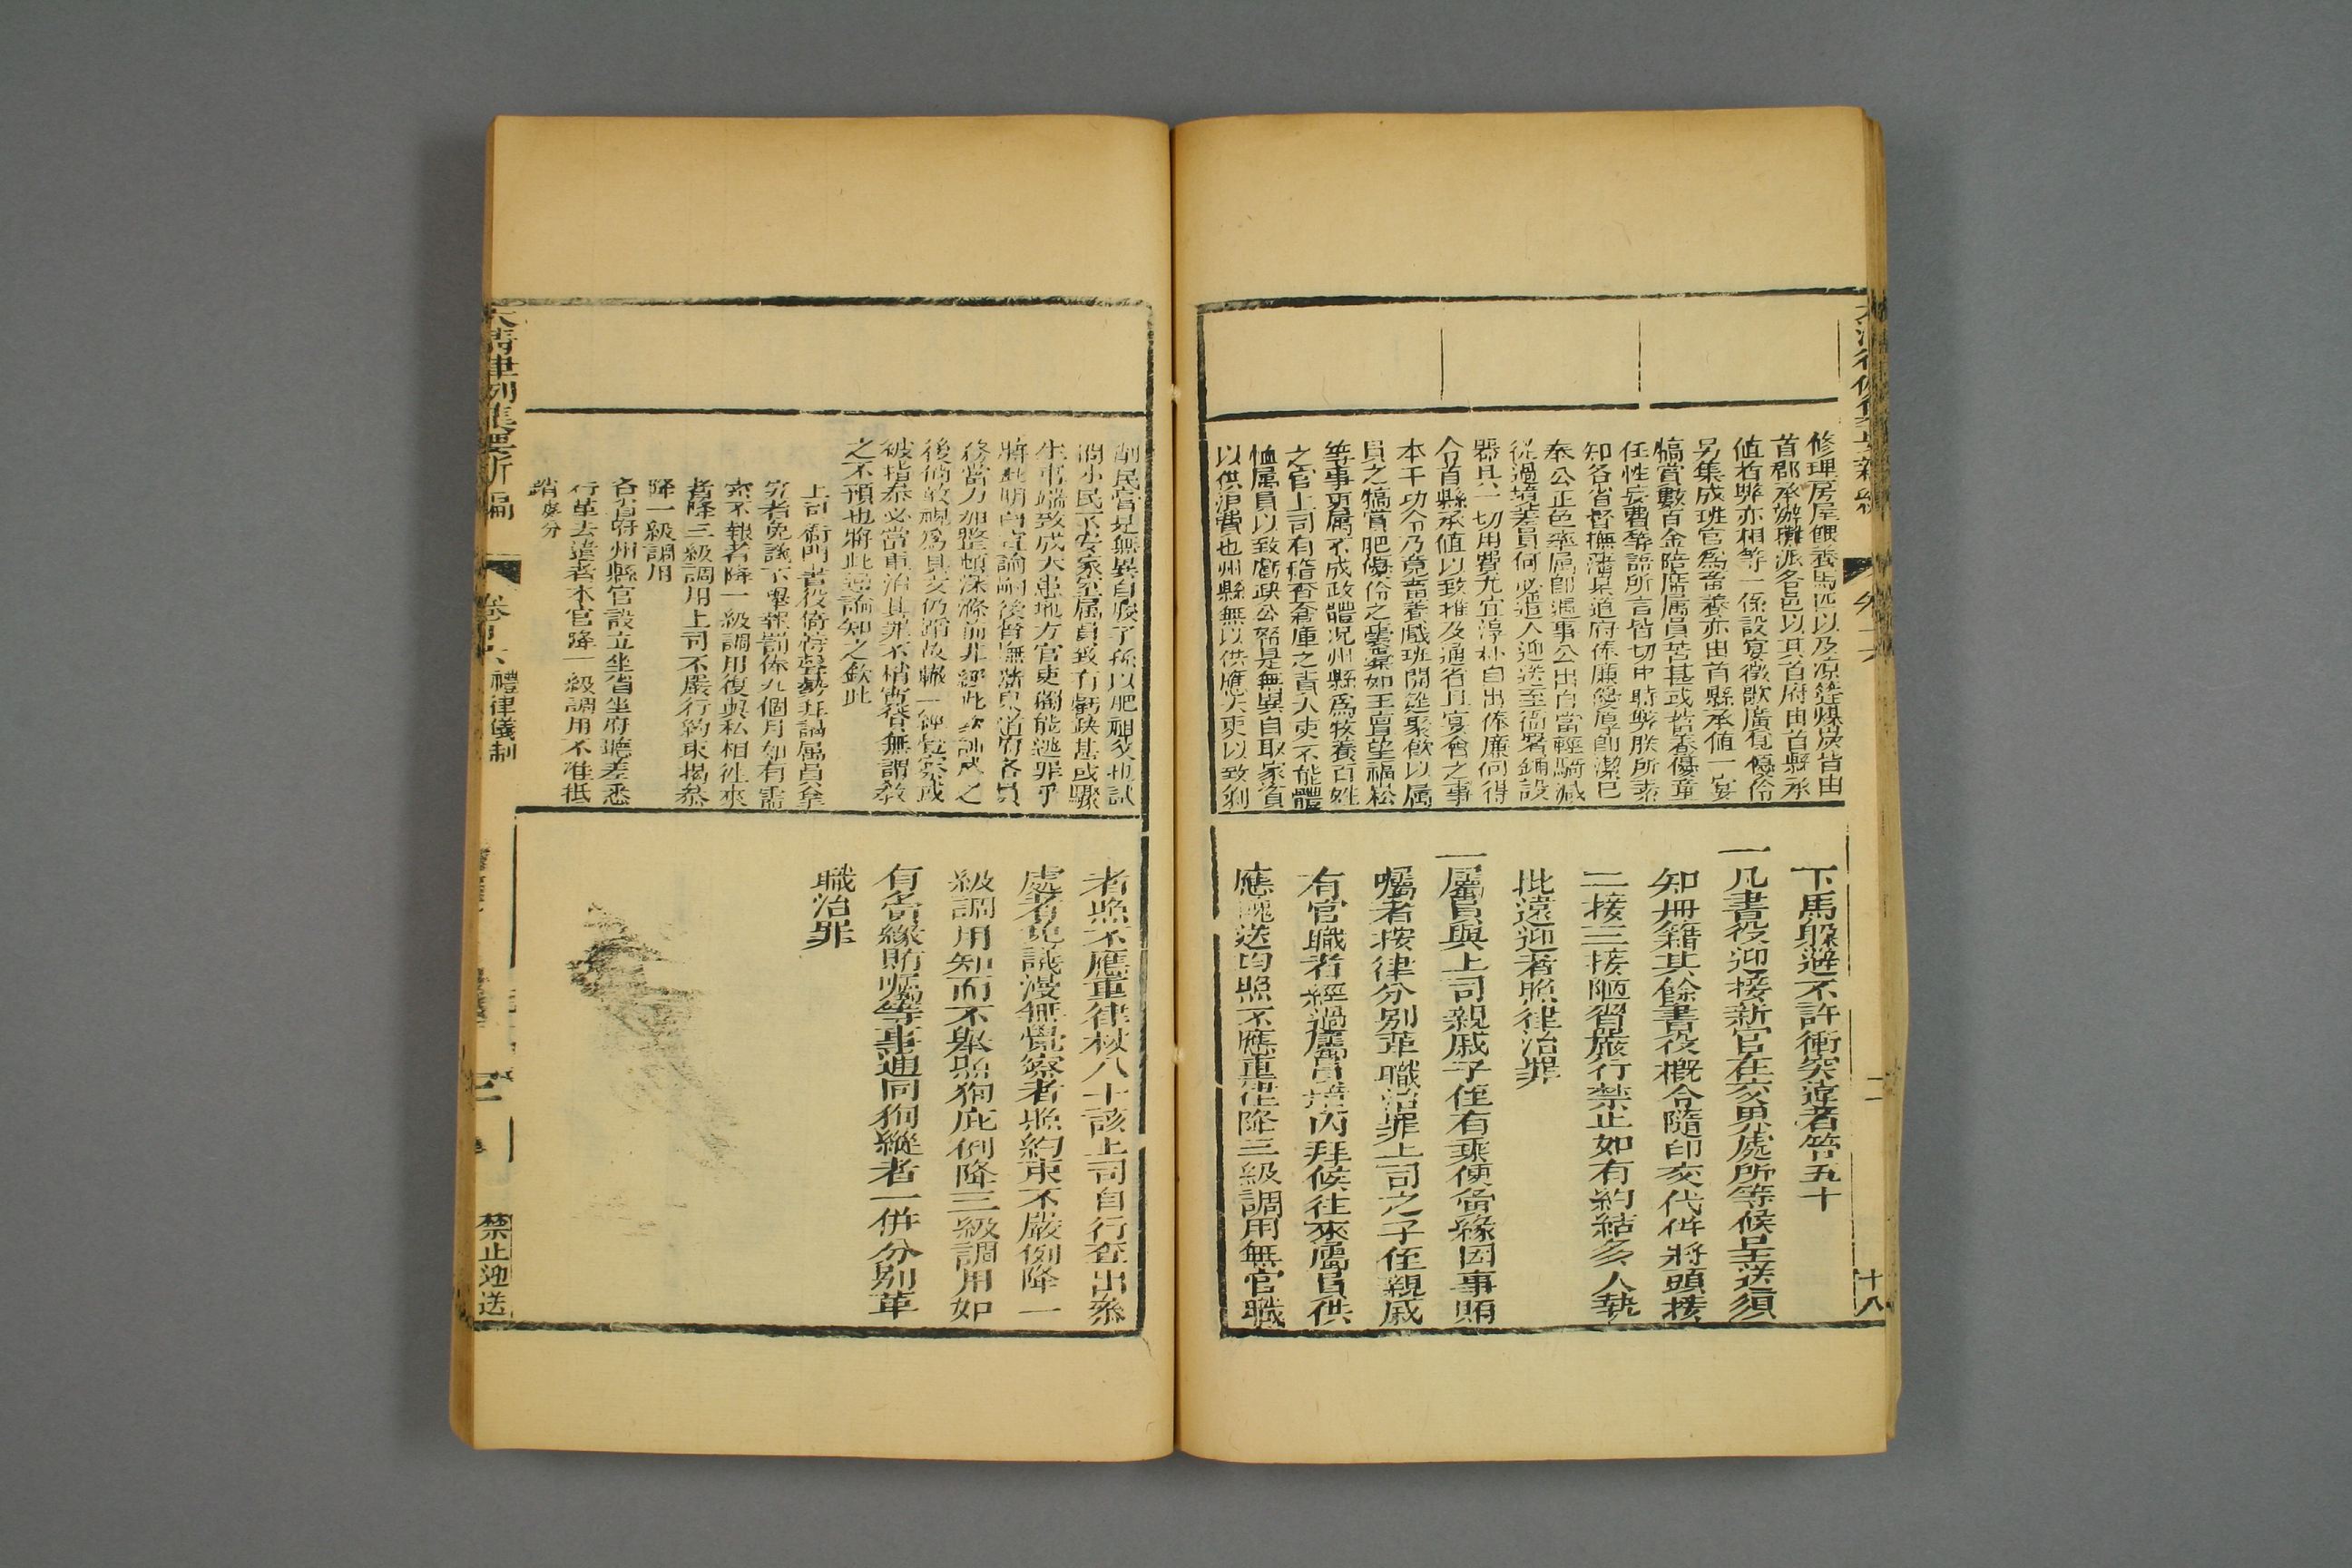 修理房屋餵養馬匹以及凉篷煤炭皆由
首郡承辦攤派各邑以其首府由首縣承
值者弊亦相等一係設宴徵歌廣覓優伶
另集成班官爲畜養亦由首縣承值一宴
犒賞數百金陪席屬員苦甚或皆養優童
任性妄費等語所言皆切中時弊朕所素
知各省督撫藩臬道府俸廉優厚卽潔已
奉公正色率屬卽遇事公出自當輕騎減
從過境差員何必遣人迎送至衙署鋪設
器具一切用費尤宜淳朴自出俸廉何得
令首縣承值以致推及通省且宴會之事
本干功令乃竟畜養戲班開筵聚飲以屬
員之犒賞肥優伶之囊橐如王亶望福崧
等事更屬不成政體况州縣爲牧養百姓
之官上司有稽查倉庫之責大吏不能體
恤屬員以致虧缺公帑是無異自取家資
以供浪費也州縣無以供應大吏以致剥
下馬躲避不許衝突違者笞五十
一凡書役迎接新官在交界處所等候呈送須
知册籍其餘書役概令隨印交代倂將頭接
二接三接陋習嚴行禁止如有約結多人執
批遠迎者照律治罪
一屬員與上司親戚子侄有乘便夤緣因事賄
囑者按律分別革職治罪上司之子侄親戚
有官職者經過屬員境內拜候往來屬員供
應餽送均照不應重律降三級調用無官職
十八
削民官是無異自朘子孫以肥祖父也試
問小民不安家室屬員致有虧缺甚或驟
生事端致成大患地方官吏獨能逃罪乎
將此明白宣諭嗣後督撫藩臬道府各員
務當力加整頓深滌前非經此次訓戒之
後倘敢視爲具文仍蹈故轍一經覺察或
被指叅必當重治其罪不稍寬容無謂教
之不預也將此通諭知之欽此
上司衙門書役倚恃聲勢拜謁屬員拿
究者免議不舉報罰俸九個月如有需
索不報者降一級調用復與私相往來
者降三級調用上司不嚴行約束揭叅
降一級調用
各省府州縣官設立坐省坐府聽差悉
行革去違者本官降一級調用不准抵
銷處分
者照不應重律杖八十該上司自行查出叅
處者免議漫無覺察者照約束不嚴例降一
級調用知而不舉照狥庇例降三級調用如
有夤緣賄囑等事通同狥縱者一倂分别革
職治罪
大清律例集要新編
禮律儀制
禁止迎送